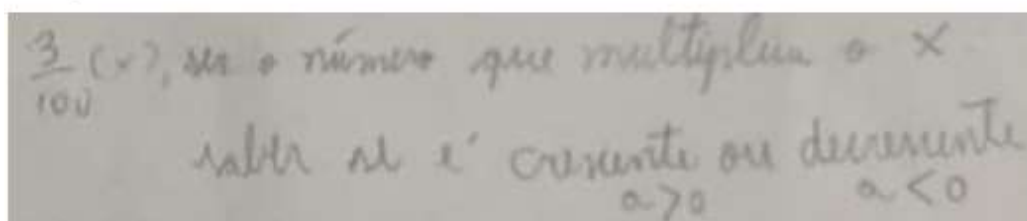 3/100 (x), ser o número que multiplica o x
saber se é crescente ou decrescente
a>0 a<0